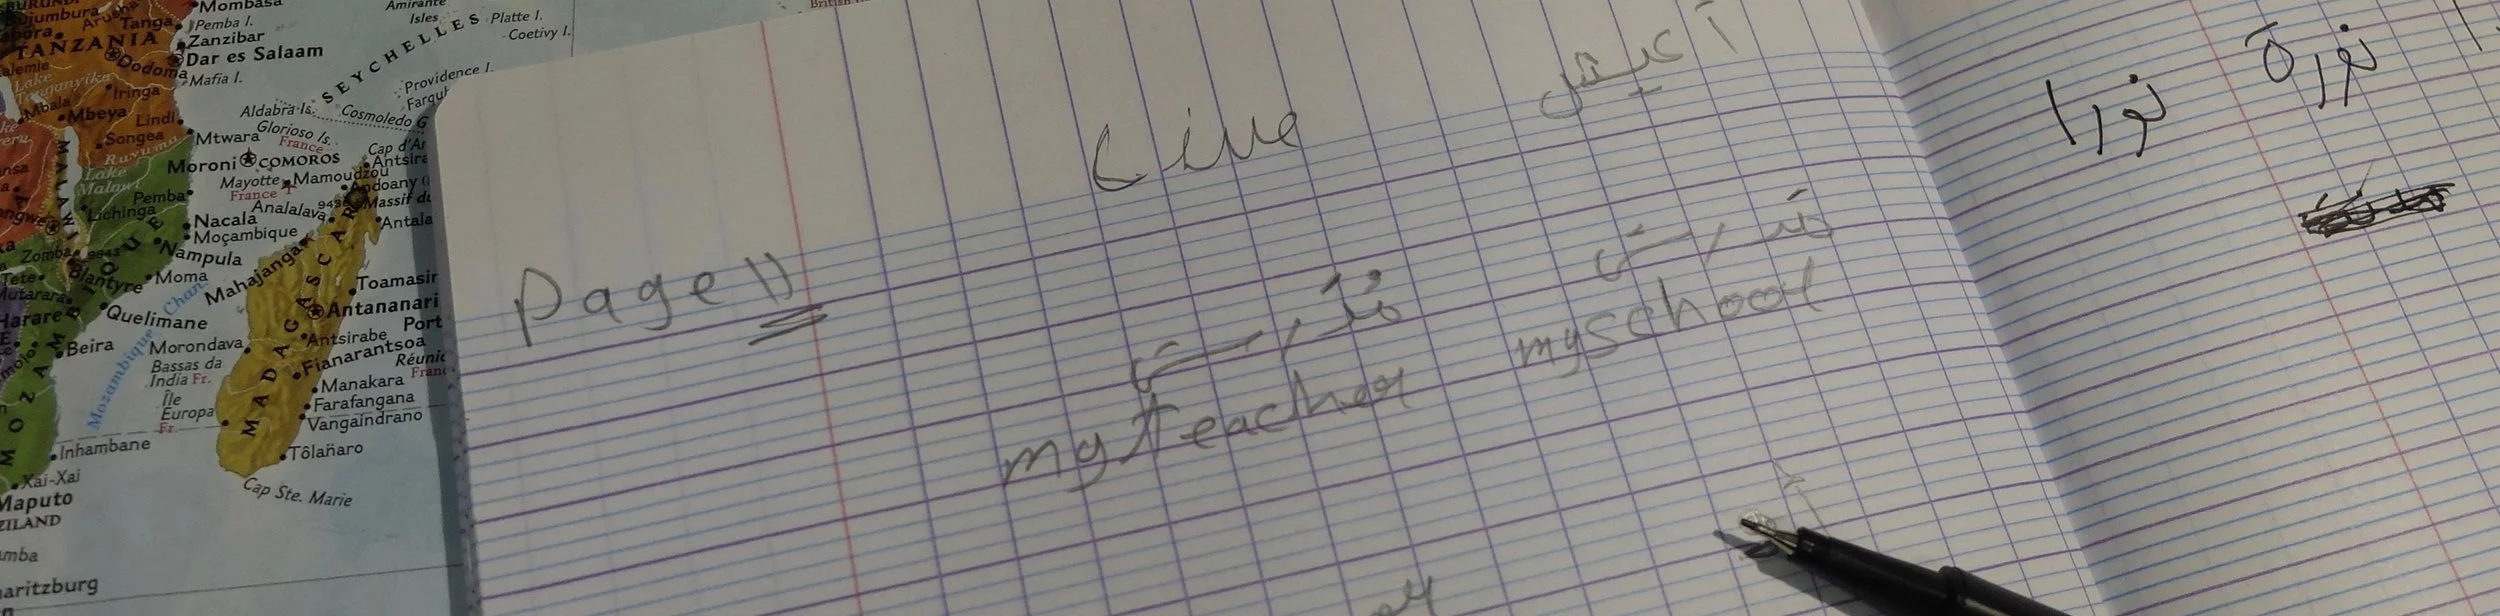 BURUNDI
Bujumbura
Arusha
Mombasa
Tanga
Pemba I.
Zanzibar
TANZANIA
Dar es Salaam
Dodoma
Mafia I.
Lake Tanganyika
Iringa
Mbala
Mbeya
Lindi
Songea
Mtwara
Ruvuma
Lake Malawi
MALAWI
Amirante Isles
Platte I.
Coetivy I.
SEYCHELLES
Providence I.
Aldabra Is.
Cosmoledo G
Glorioso Is.
France
Moroni
COMOROS
Mayotte
France
Mamoudzou
Pemba
Lichinga
Nacala
Moçambique
Nampula
Analalava
Mahajanga
Massif du
Zomba
Blantyre
Moma
Tete
Quelimane
Harare
Beira
Mozambique Chan.
MOZAMBIQUE
MADAGASCAR
Toamasin
Antananari
Antsirabe
Morondava
Fianarantsoa
Bassas da India Fr.
Manakara
Île Europa Fr.
Farafangana
Vangaindrano
Inhambane
Tôlañaro
Xai-Xai
Maputo
Cap Ste. Marie
Page 11
Live
أعيش
مدرستي
مدرستي
my teacher
my school
نورة
نورا